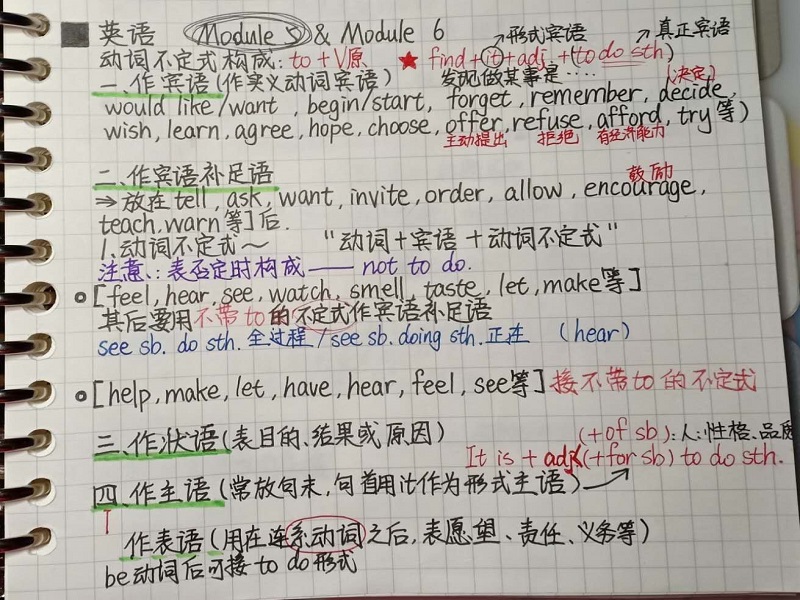 英语 Module 5 & Module 6 形式宾语 真正宾语
动词不定式构成: to + V原 ★ find + it + adj. + (to do sth)
一、作宾语 (作实义动词宾语) 发现做某事是…… (决定)
would like/want, begin/start, forget, remember, decide,
wish, learn, agree, hope, choose, offer, refuse, afford, try 等)
主动提出 拒绝 有经济能力
二、作宾语补足语 鼓励
⇒放在[tell, ask, want, invite, order, allow, encourage,
teach, warn 等]后.
1. 动词不定式~ “动词+宾语+动词不定式”
注意: 表否定时构成 —— not to do.
[feel, hear, see, watch, smell, taste, let, make等]
其后要用不带to的不定式作宾语补足语
see sb. do sth. 全过程 / see sb. doing sth. 正在 (hear)
[help, make, let, have, hear, feel, see等] 接不带to的不定式
三、作状语 (表目的、结果或原因) (+of sb): 人: 性格、品质
It is + adj. (+for sb) to do sth.
四、作主语 (常放句末, 句首用it作为形式主语)
作表语 (用在连系动词之后, 表愿望、责任、义务等)
be动词后可接 to do 形式